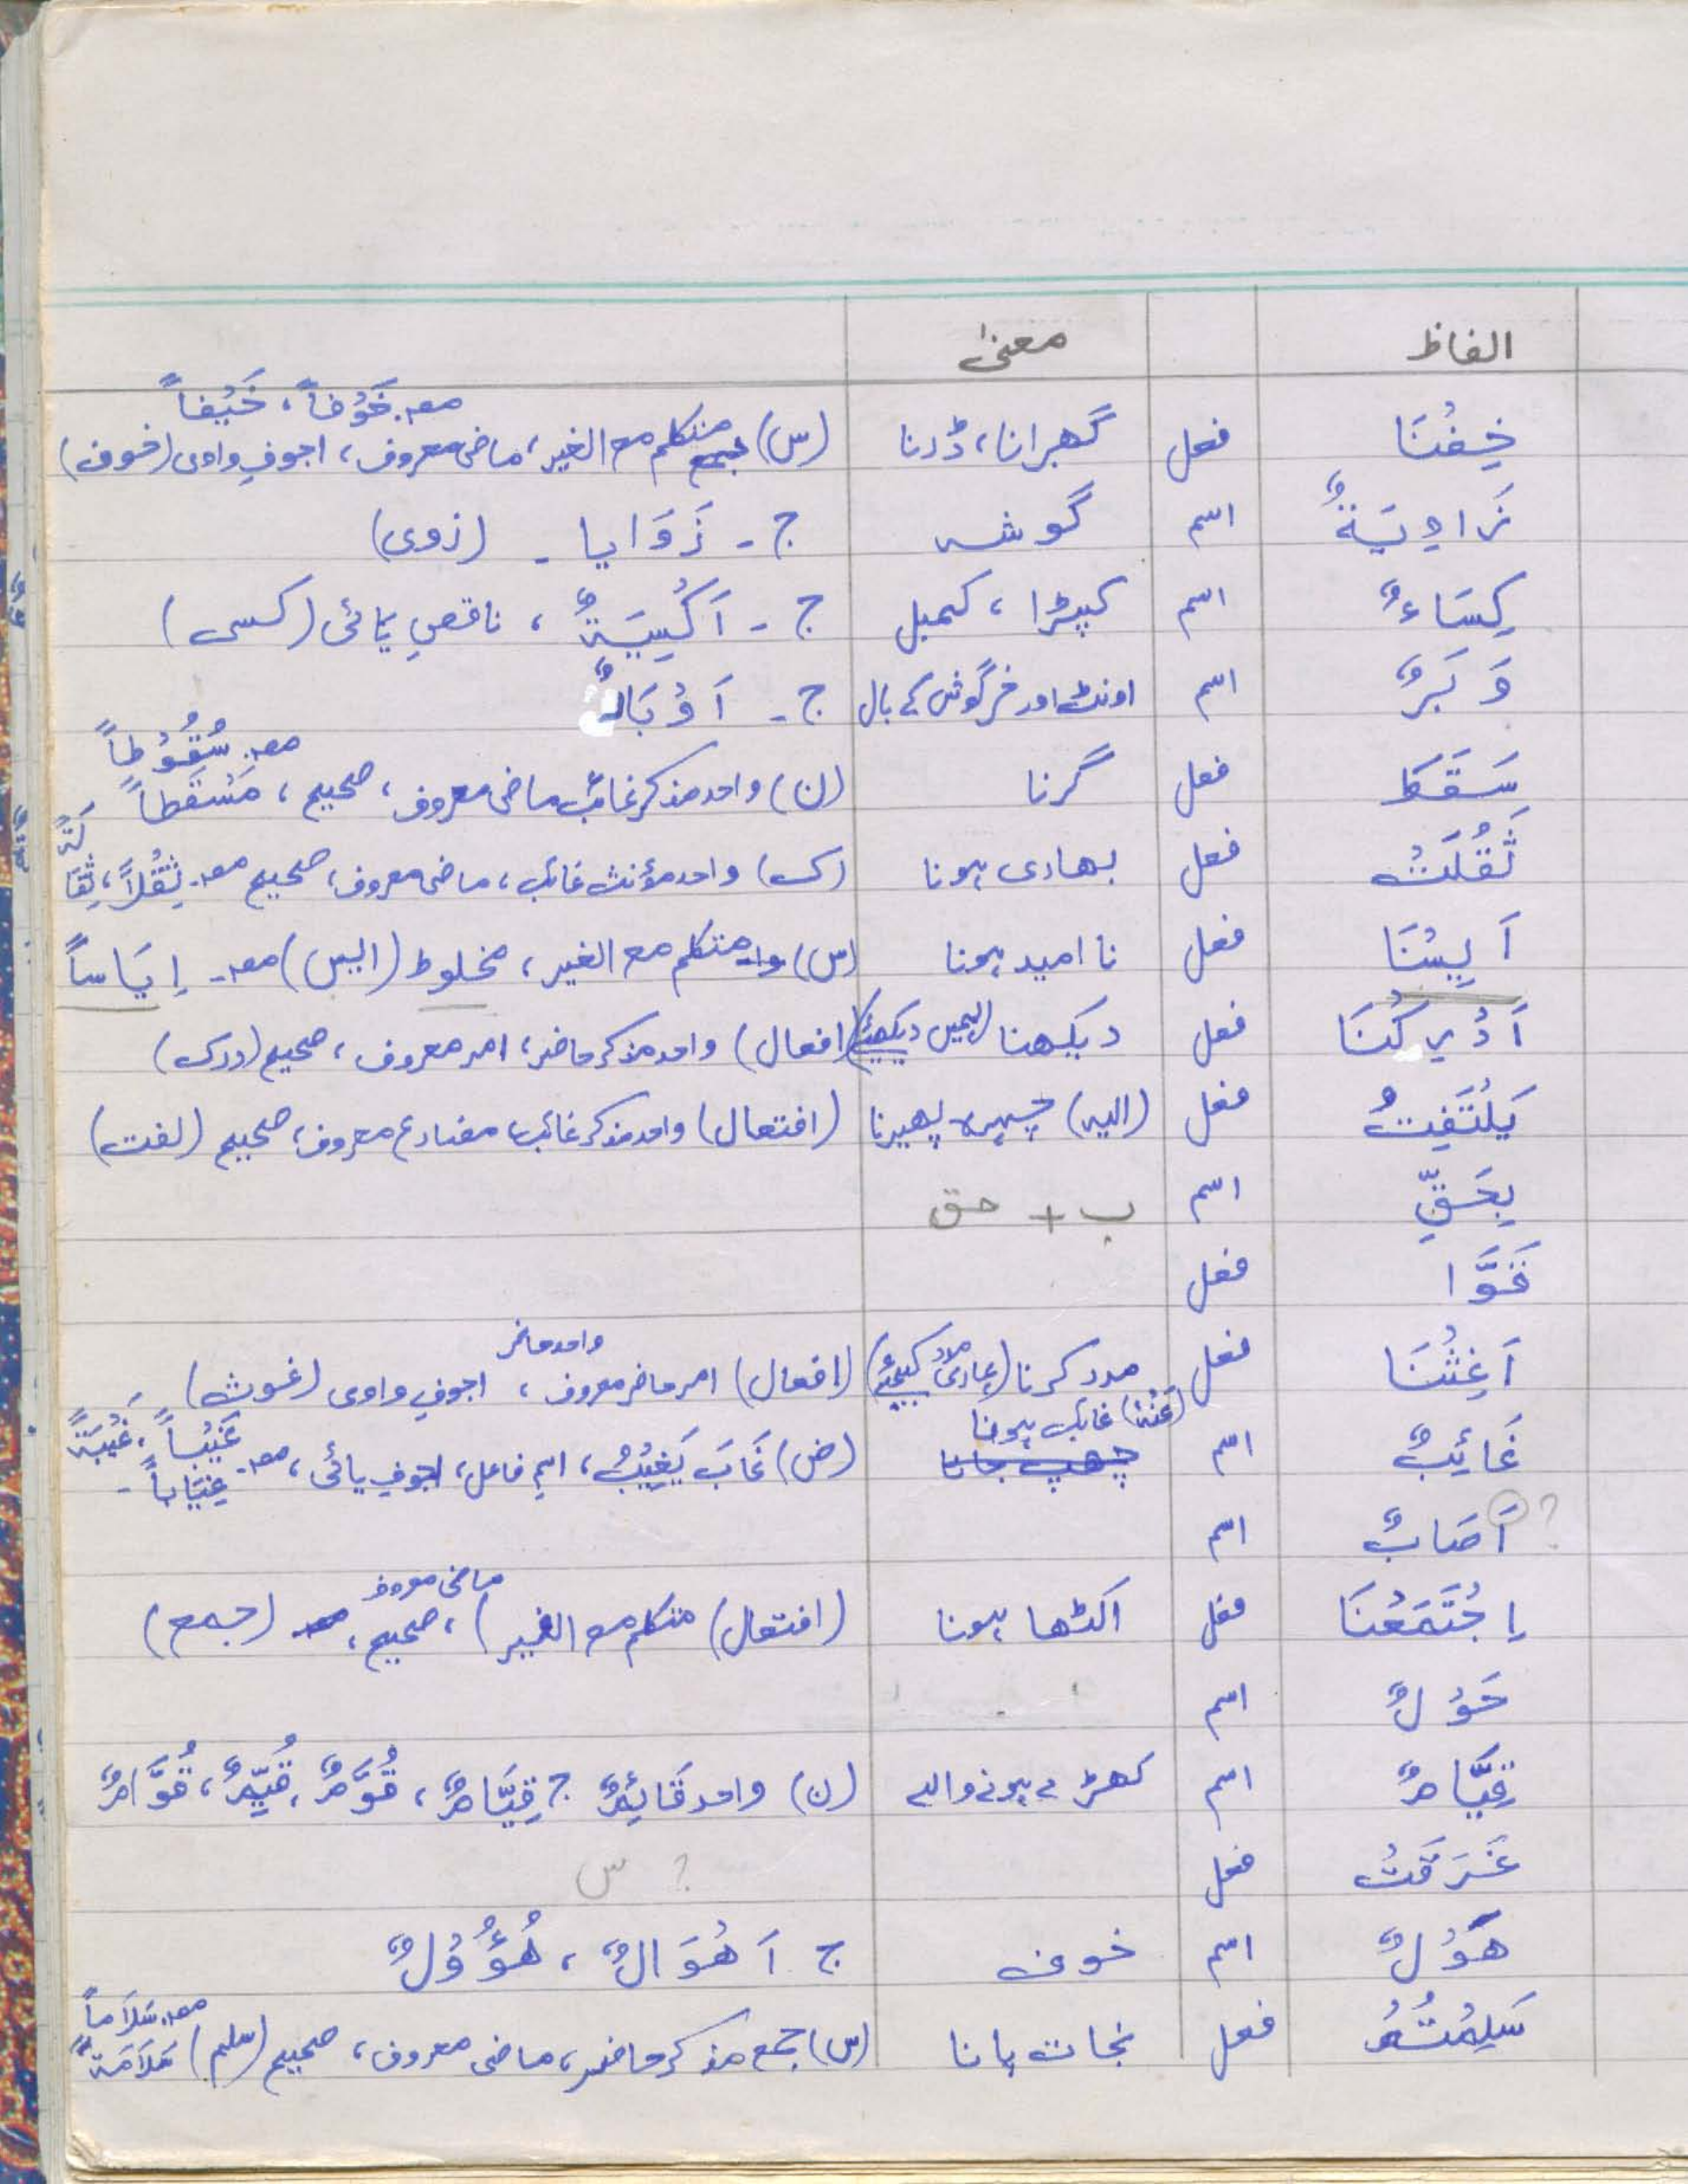 الفاظ معنیٰ
خِفْنَا فعل گھبرانا، ڈرنا (س) متکلم مع الغیر، ماضی معروف، اجوفِ واوی (خوف) مصـ خَوْفاً، خَیْفاً
زَاوِیَةٌ اسم گوشہ ج ـ زَوَایا ـ (زوی)
کِسَاءٌ اسم کپڑا، کمبل ج ـ اَکْسِیَةٌ، ناقصِ یائی (کسی)
وَبَرٌ اسم اونٹ اور خرگوش کے بال ج ـ اَوْبَارٌ
سَقَطَ فعل گرنا (ن) واحد مذکر غائب ماضی معروف، صحیح، مصـ سُقُوْطاً مَسْقَطاً
ثَقُلَتْ فعل بھاری ہونا (ک) واحد مؤنث غائب، ماضی معروف، صحیح مصـ ثِقْلاً، ثِقَالَةً
اَیِسْنَا فعل نا امید ہونا (س) متکلم مع الغیر، مخلوط (ایس) مصـ اِیَاساً
اَدْرِکْنَا فعل دیکھنا (ہمیں دیکھئے) (افعال) واحد مذکر حاضر، امر معروف، صحیح (درک)
یَلْتَفِتُ فعل (الیہ) چہرہ پھیرنا (افتعال) واحد مذکر غائب، مضارع معروف، صحیح (لفت)
بِحَقِّ اسم ب + حق
فَوَّا فعل
اَغِثْنَا فعل مدد کرنا (ہماری مدد کیجئے) (افعال) امر حاضر معروف، واحد حاضر اجوفِ واوی (غوث)
غَائِبٌ اسم چھپ جانا (عَنْهُ) غائب ہونا (ض) غَابَ یَغِیْبُ، اسمِ فاعل، اجوفِ یائی، مصـ غَیْباً، غَیْبَةً غِیَاباً ـ
? اَصَابٌ اسم
اِجْتَمَعْنَا فعل اکٹھا ہونا (افتعال) متکلم مع الغیر)، ماضی معروف صحیح، (جمع)
حَوْلٌ اسم
قِیَّامٌ اسم کھڑے ہونے والے (ن) واحد قَائِمٌ ج قِیَّامٌ، قُوَّمٌ، قُیَّمٌ، قُوَّامٌ
غَرَقَتْ فعل ? س
هَوْلٌ اسم خوف ج اَهْوَالٌ، هُؤُوْلٌ
سَلِمْتُمْ فعل نجات پانا (س) جمع مذکر حاضر، ماضی معروف، صحیح (سلم) مصـ سَلَاماً سَلَامَةً